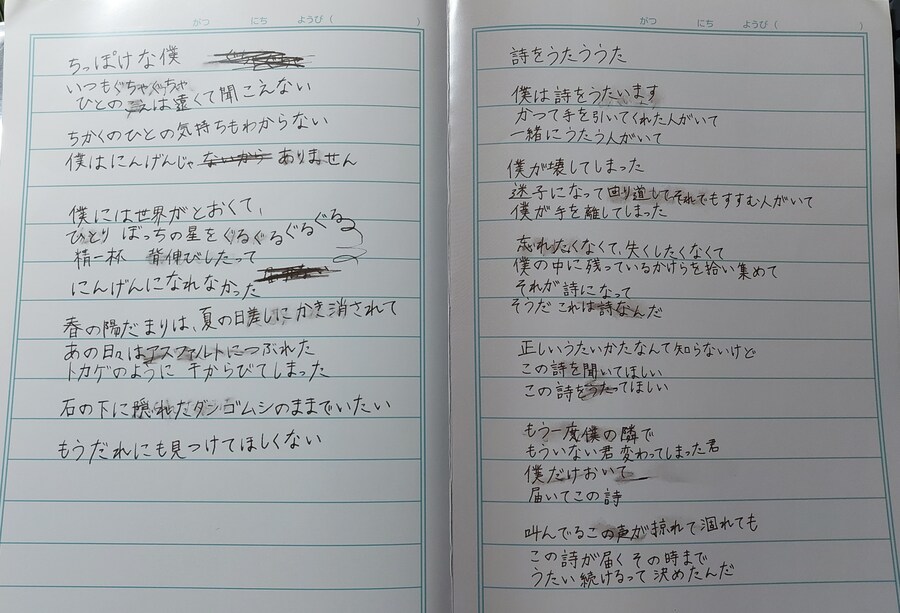 がつ にち ようび ( )
ちっぽけな僕
いつもぐちゃぐっちゃ
ひとのこえは遠くて聞こえない
ちかくのひとの気持ちもわからない
僕はにんげんじゃ ないから ありません
僕には世界がとおくて、
ひとり ぼっちの星をぐるぐるぐるぐる
精一杯 背伸びしたって
にんげんになれなかった
春の陽だまりは、夏の日差しにかき消されて
あの日々はアスファルトにつぶれた
トカゲのように 干からびてしまった
石の下に隠れたダンゴムシのままでいたい
もうだれにも見つけてほしくない
がつ にち ようび ( )
詩をうたううた
僕は詩をうたいます
かつて手を引いてくれた人がいて
一緒にうたう人がいて
僕が壊してしまった
迷子になって曲り道してそれでもすすむ人がいて
僕が手を離してしまった
忘れたくなくて、失くしたくなくて
僕の中に残っているかけらを拾い集めて
それが詩になって
そうだ これは詩なんだ
正しいうたいかたなんて知らないけど
この詩を聞いてほしい
この詩をうたってほしい
もう一度僕の隣で
もういない君 変わってしまった君
僕だけおいて
届いてこの詩
叫んでるこの声が掠れて涸れても
この詩が届く その時まで
うたい続けるって 決めたんだ